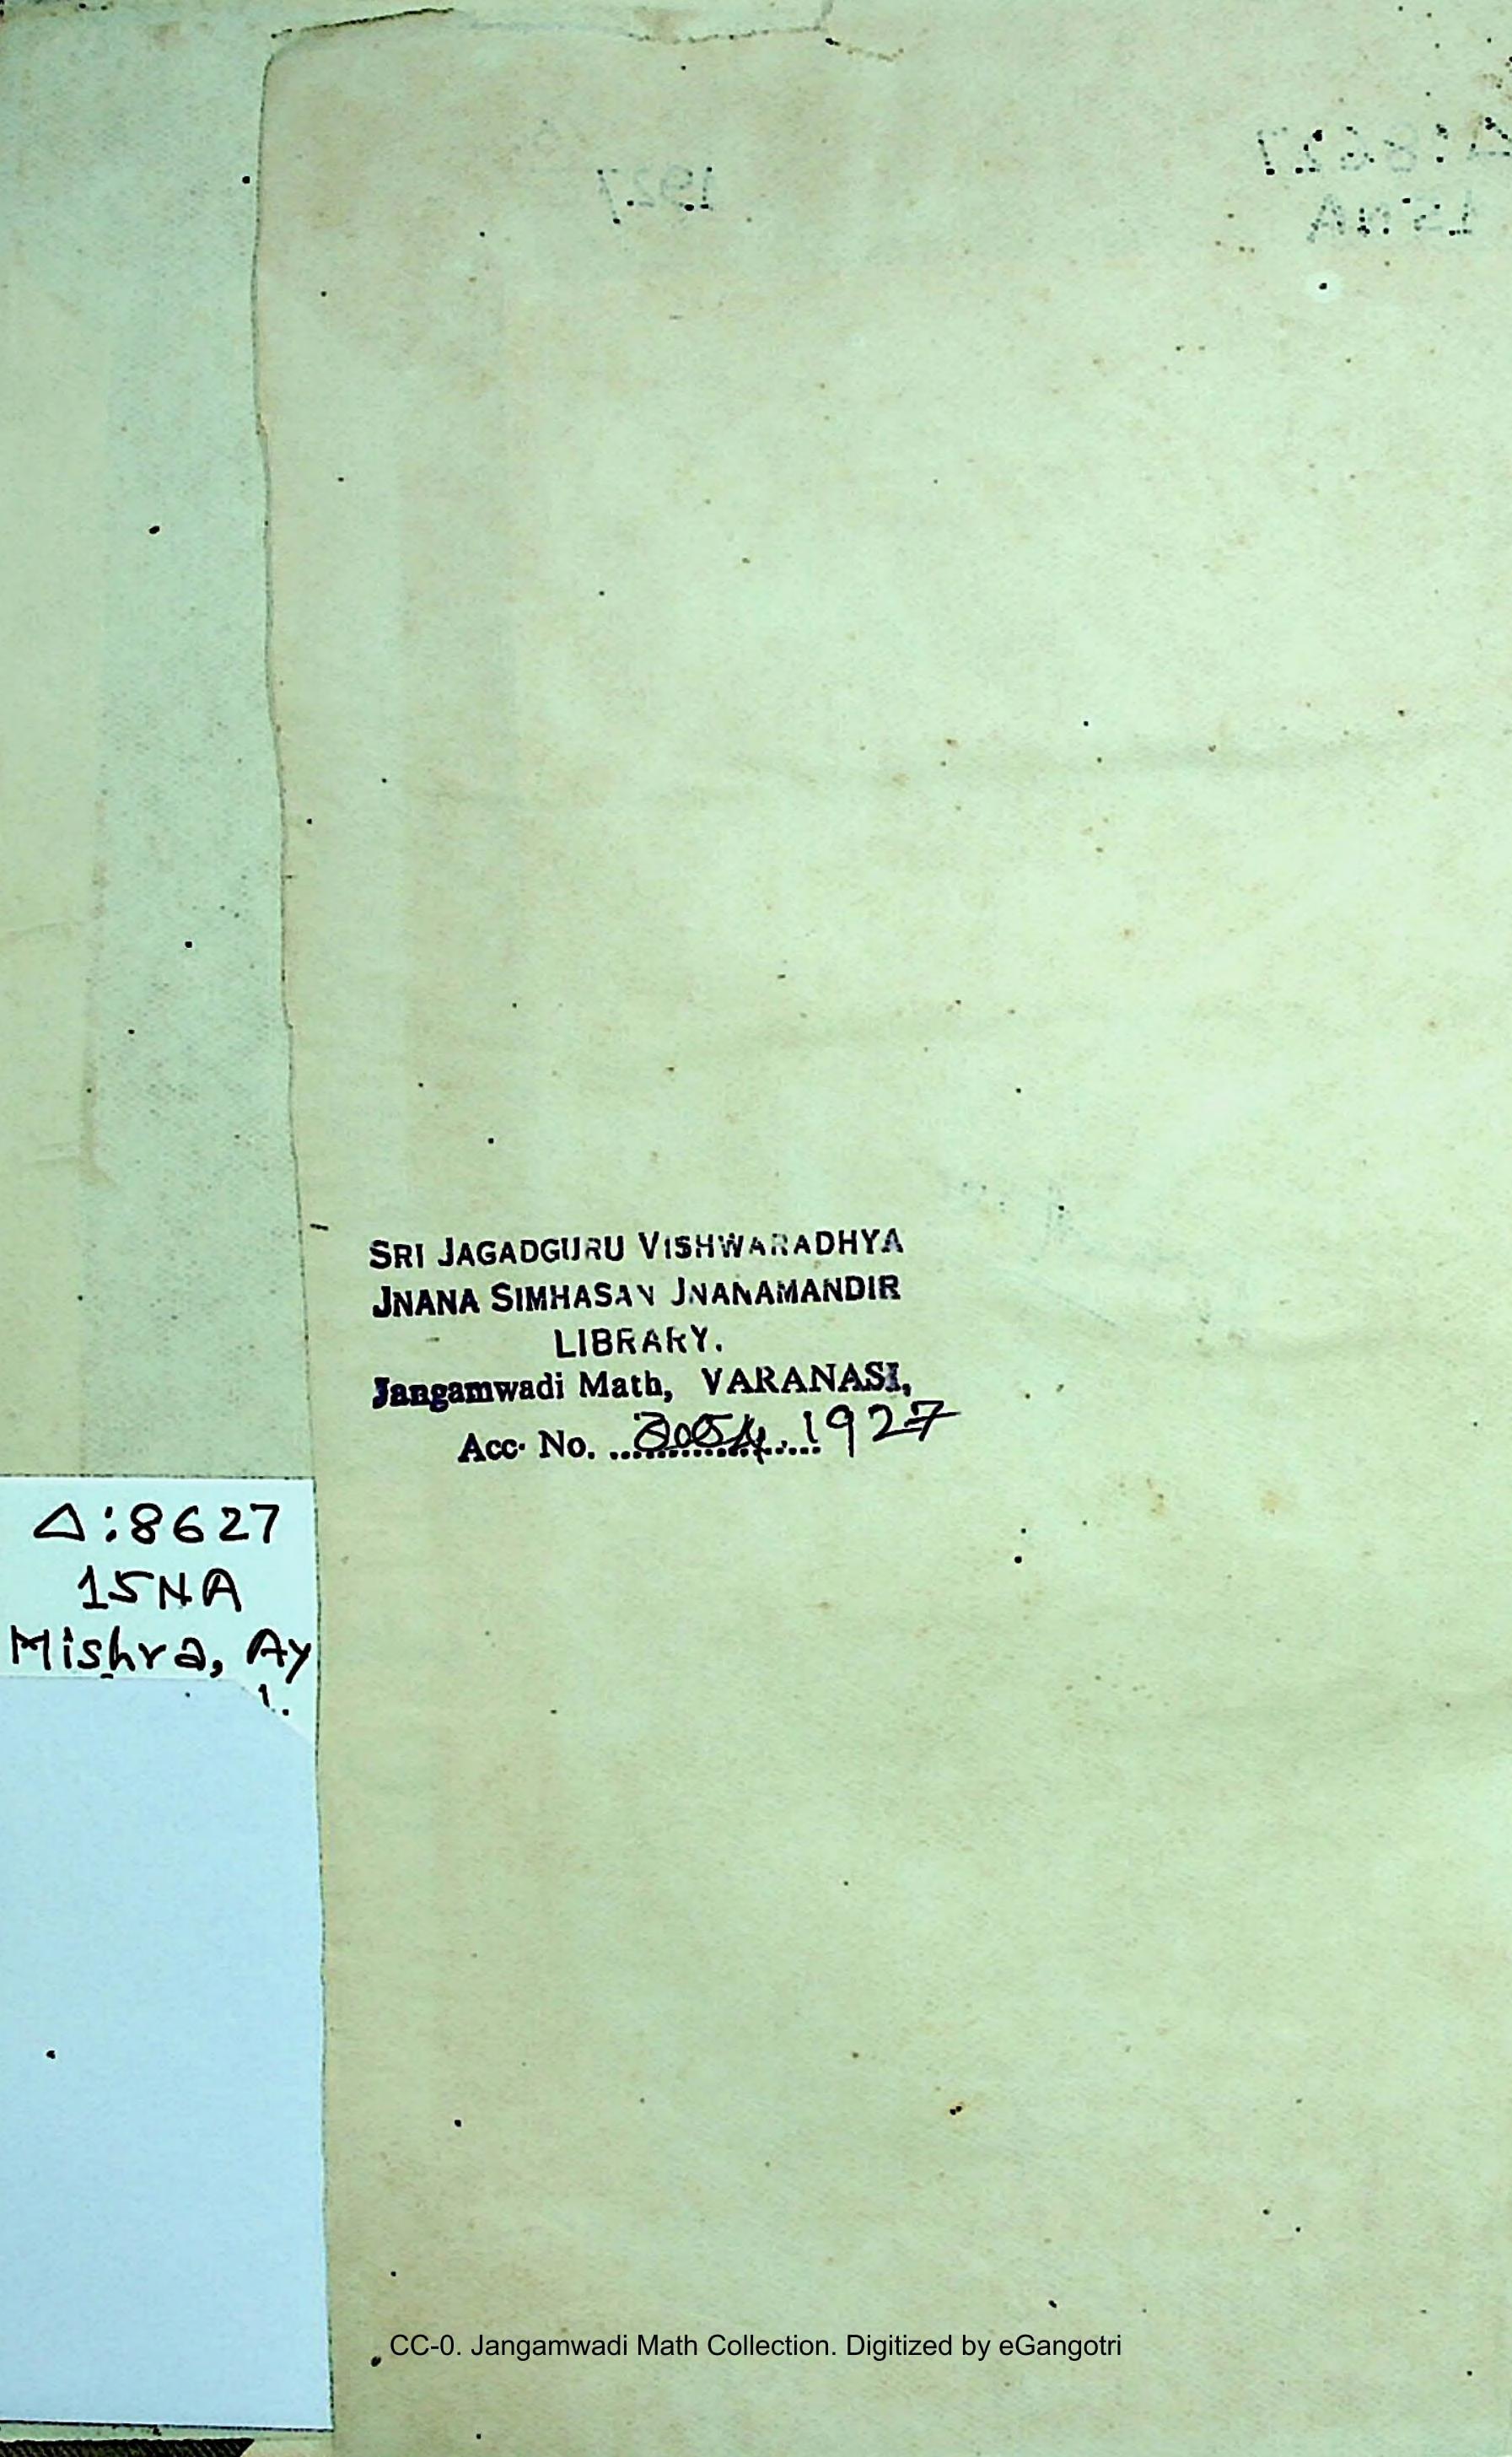 SRI JAGADGURU VISHWARADHYA
JNANA SIMHASAN JNANAMANDIR
LIBRARY.
Jangamwadi Math, VARANASI,
Acc. No. .................... 1927
Δ:8627
15NA
Mishra, Ay
1.
CC-0. Jangamwadi Math Collection. Digitized by eGangotri